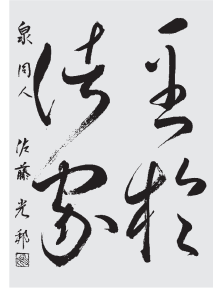 至於
諸家
泉 同人 佐藤光邦